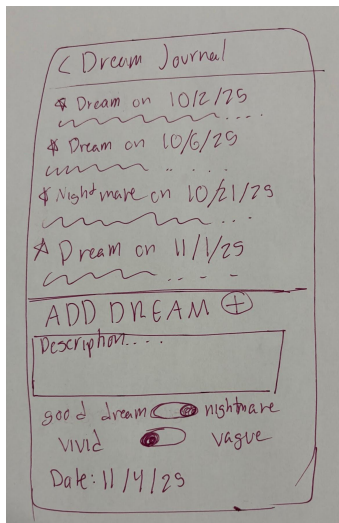 < Dream Journal
☆ Dream on 10/2/25
☆ Dream on 10/6/25
☆ Nightmare on 10/21/25
☆ Dream on 11/1/25
ADD DREAM +
Description....
good dream nightmare
vivid vague
Date: 11/4/25